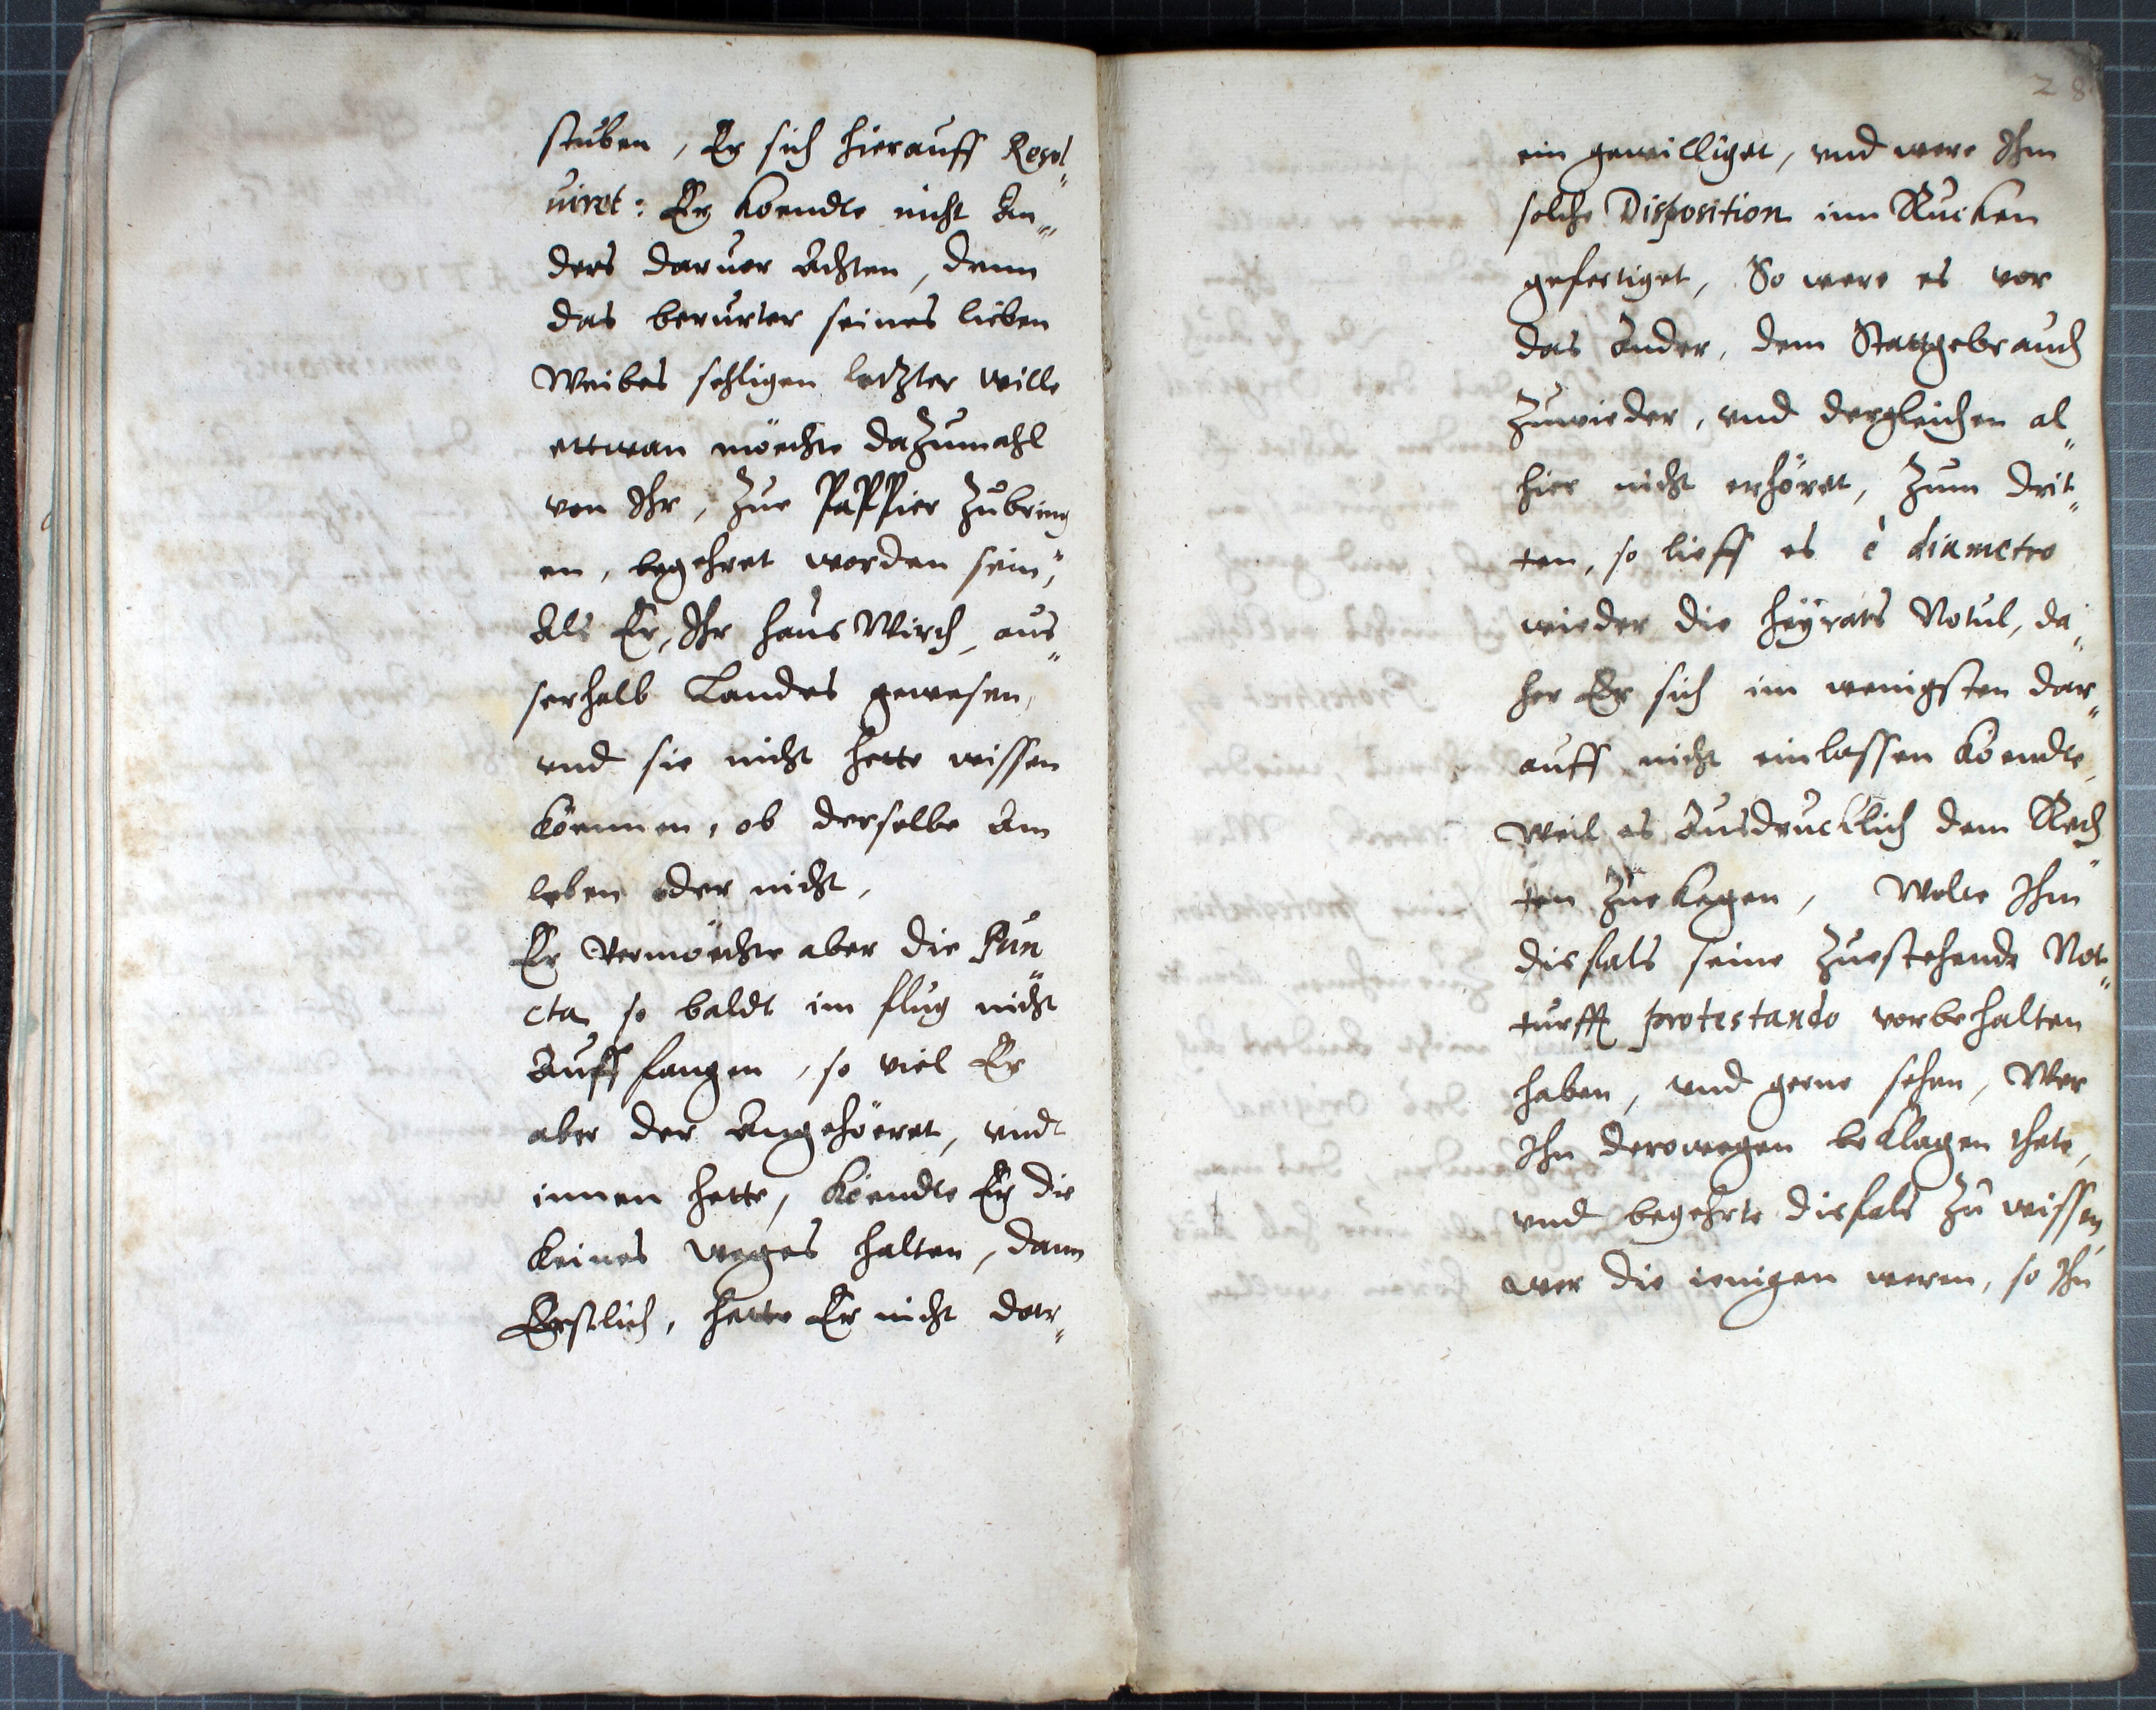 stuben, Er sich hierauff Resol„
uiret: Er koendte nicht An„
ders daruor Achten, denn
das berurter seines lieben
Weibes sehligen letzter wille
ettwan möchte dazumahl
von Ihr, zue Pappier zubring
en, begehret worden sein,
Als Er, Ihr haus Wirth, aus„
serhalb Landes gewesen,
vnd sie nicht hette wissen
köennen, ob derselbe Am
leben oder nicht,
Er vermöchte aber die Pun„
cta so baldt im flug nicht
Auff fangen, so viel Er
aber der Angehöeret, vndt
innen hette, köendte Er die
keines weges halten, dann
Erstlich, hette Er nicht dar„
28
ein gewilliget, vnd were Ihm
solche Disposition inn Rucken
gefertiget, So were es vor
das Ander, dem Stattgebrauch
zuwieder, vnd dergleichen al„
hier nicht erhöret, Zum drit„
ten, so lieff es è diametro
wieder die heyrats Notul, da„
her Er sich im wenigsten dar„
auff nicht einlassen koendte,
Weil es Ausdrucklich dem Rech„
ten zue kegen, Wolte Ihm
disfals seine zuestehende Not„
turfft protestando vorbehalten
haben, vnd gerne sehen, Wer
Ihn derowegen beklagen thete,
vnd begehrte disfals zu wissen,
wer die ienigen weren, so Ihn